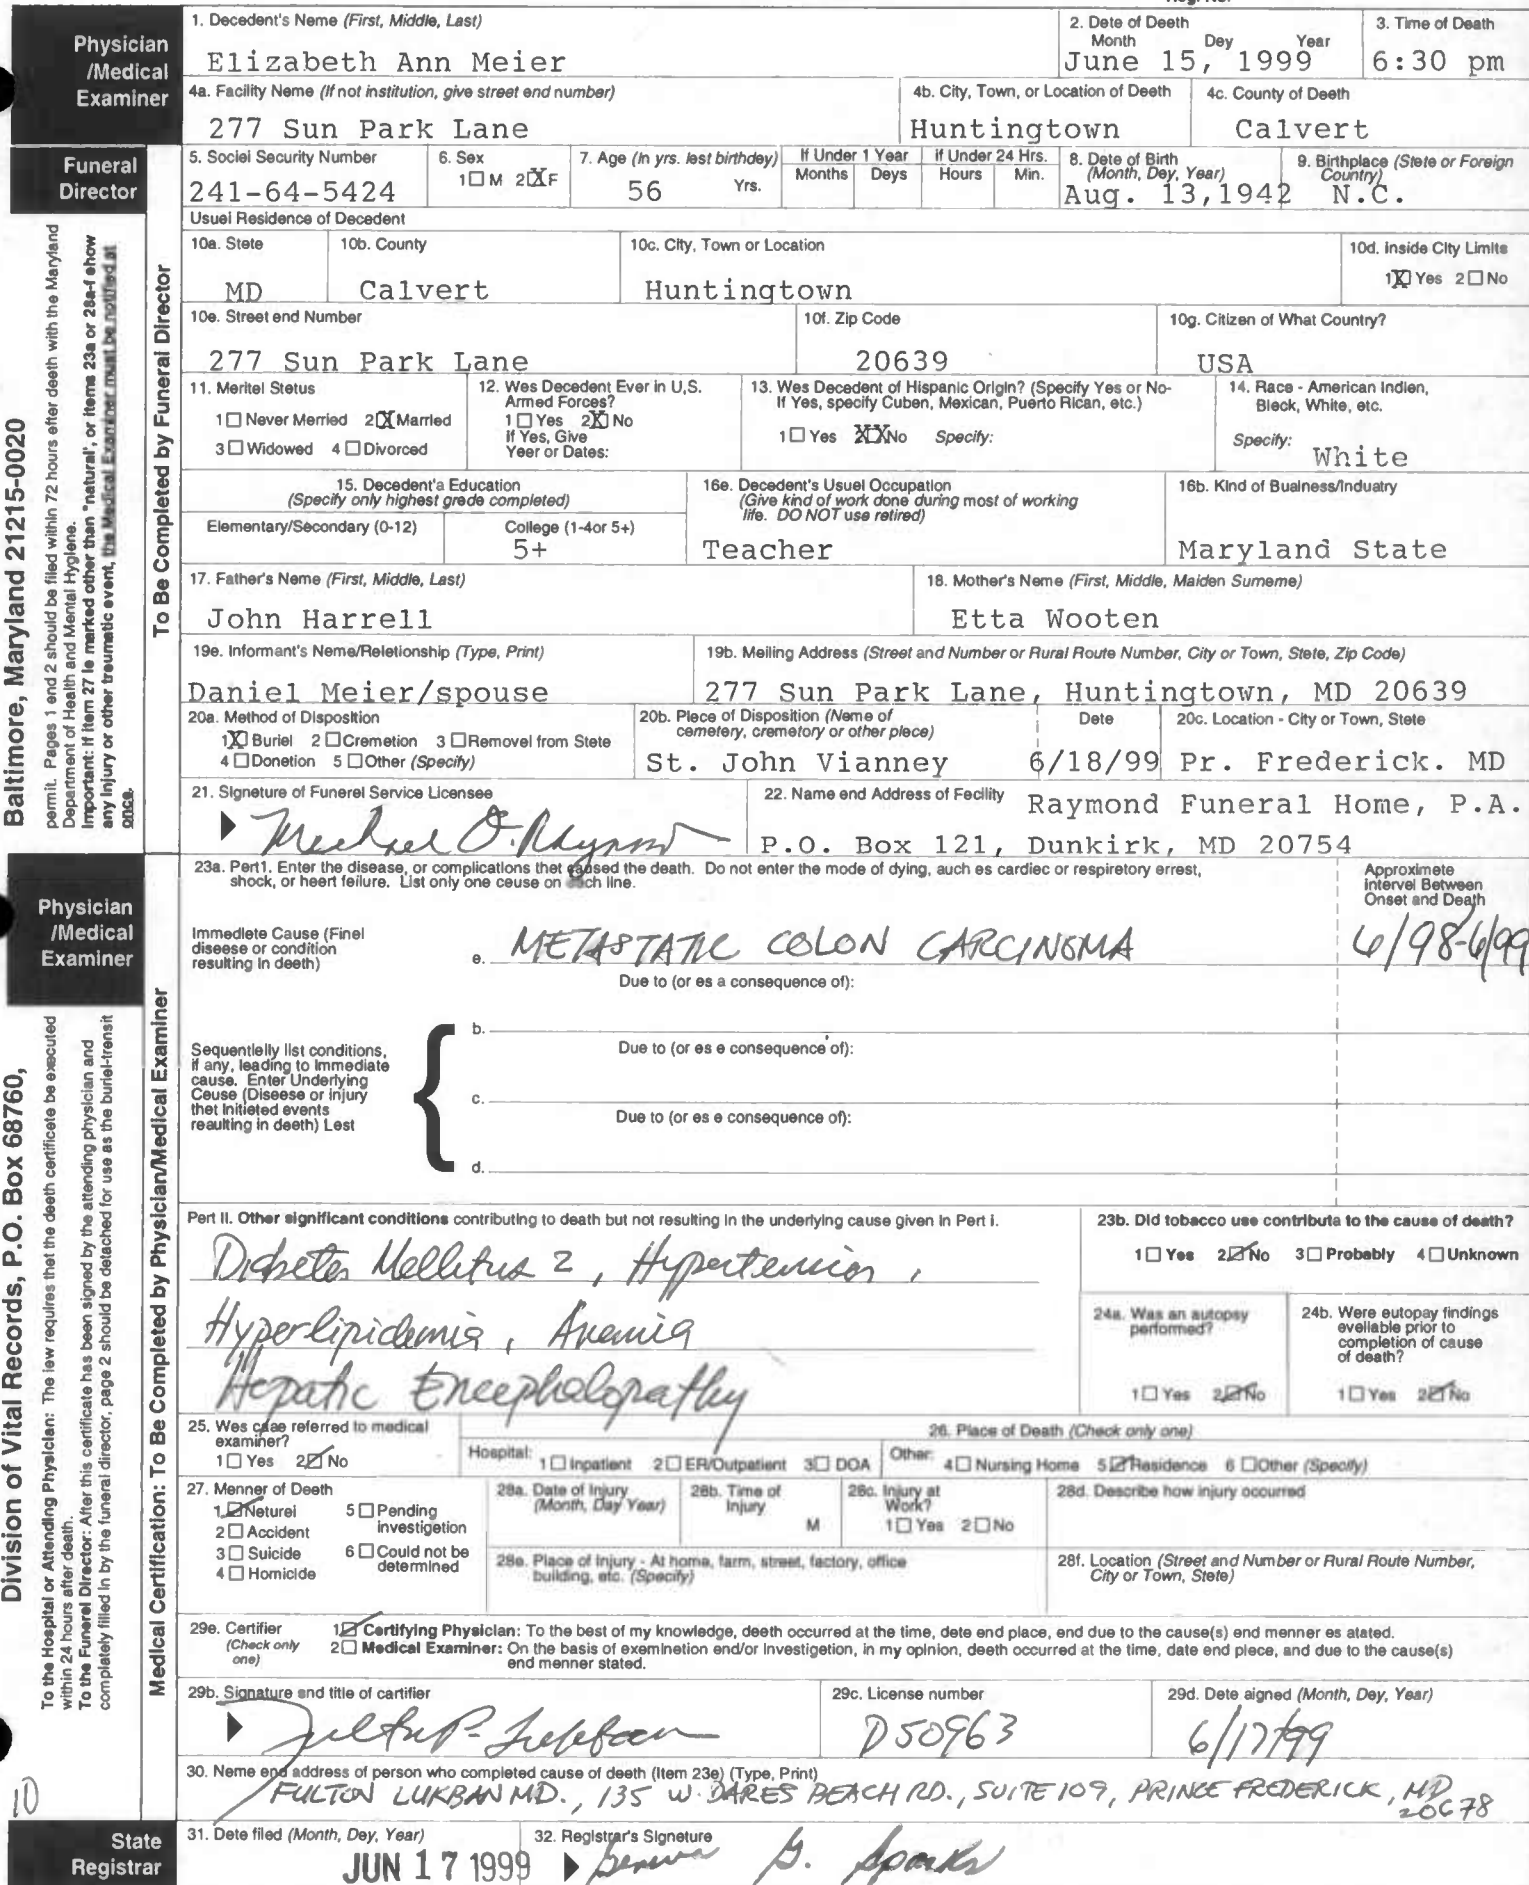 Physician
/Medical
Examiner
1. Decedent's Name (First, Middle, Last)
Elizabeth Ann Meier
2. Date of Death
Month Day Year
June 15, 1999
3. Time of Death
6:30 pm
4a. Facility Name (If not institution, give street end number)
277 Sun Park Lane
4b. City, Town, or Location of Death
Huntingtown
4c. County of Death
Calvert
Funeral
Director
5. Social Security Number
241-64-5424
6. Sex
1☐ M 2☒F
7. Age (In yrs. last birthday)
56 Yrs.
If Under 1 Year
Months Days
If Under 24 Hrs.
Hours Min.
8. Date of Birth
(Month, Day, Year)
Aug. 13,1942
9. Birthplace (State or Foreign
Country)
N.C.
Usual Residence of Decedent
10a. State
MD
10b. County
Calvert
10c. City, Town or Location
Huntingtown
10d. Inside City Limits
1☒ Yes 2☐ No
10e. Street end Number
277 Sun Park Lane
10f. Zip Code
20639
10g. Citizen of What Country?
USA
11. Marital Status
1☐ Never Married 2☒ Married
3☐ Widowed 4☐ Divorced
12. Was Decedent Ever in U,S.
Armed Forces?
1☐ Yes 2☒ No
If Yes, Give
Year or Dates:
13. Was Decedent of Hispanic Origin? (Specify Yes or No-
If Yes, specify Cuban, Mexican, Puerto Rican, etc.)
1☐ Yes XXNo Specify:
14. Race - American Indian,
Black, White, etc.
Specify:
White
15. Decedent's Education
(Specify only highest grade completed)
Elementary/Secondary (0-12)
College (1-4or 5+)
5+
16a. Decedent's Usual Occupation
(Give kind of work done during most of working
life. DO NOT use retired)
Teacher
16b. Kind of Business/Industry
Maryland State
17. Father's Name (First, Middle, Last)
John Harrell
18. Mother's Name (First, Middle, Maiden Surname)
Etta Wooten
19a. Informant's Name/Relationship (Type, Print)
Daniel Meier/spouse
19b. Mailing Address (Street and Number or Rural Route Number, City or Town, State, Zip Code)
277 Sun Park Lane, Huntingtown, MD 20639
20a. Method of Disposition
1☒ Burial 2☐Cremation 3☐Removal from State
4☐Donation 5☐Other (Specify)
20b. Place of Disposition (Name of
cemetery, crematory or other place)
St. John Vianney
Date
6/18/99
20c. Location - City or Town, State
Pr. Frederick. MD
21. Signature of Funeral Service Licensee
22. Name end Address of Facility
Raymond Funeral Home, P.A.
P.O. Box 121, Dunkirk, MD 20754
Baltimore, Maryland 21215-0020
permit. Pages 1 end 2 should be filed within 72 hours after death with the Maryland
Department of Health and Mental Hygiene.
Important: If item 27 is marked other than "natural", or items 23a or 28a-f show
any injury or other traumatic event, the Medical Examiner must be notified at
once.
To Be Completed by Funeral Director
Physician
/Medical
Examiner
23a. Part1. Enter the disease, or complications that caused the death. Do not enter the mode of dying, such as cardiac or respiratory arrest,
shock, or heart failure. List only one cause on each line.
Approximate
Interval Between
Onset and Death
Immediate Cause (Final
disease or condition
resulting in death)
a. METASTATIC COLON CARCINOMA
6/98-6/99
Due to (or as a consequence of):
b.
Due to (or as a consequence of):
Sequentially list conditions,
if any, leading to immediate
cause. Enter Underlying
Cause (Disease or injury
that initiated events
resulting in death) Last
c.
Due to (or as a consequence of):
d.
Part II. Other significant conditions contributing to death but not resulting in the underlying cause given in Part I.
Diabetes Mellitus 2, Hypertension,
Hyperlipidemia, Anemia
Hepatic Encephalopathy
23b. Did tobacco use contribute to the cause of death?
1☐ Yes 2☑No 3☐Probably 4☐Unknown
24a. Was an autopsy
performed?
1☐ Yes 2☑No
24b. Were autopsy findings
available prior to
completion of cause
of death?
1☐Yes 2☑No
25. Was case referred to medical
examiner?
1☐ Yes 2☑ No
26. Place of Death (Check only one)
Hospital: 1☐Inpatient 2☐ER/Outpatient 3☐ DOA
Other: 4☐Nursing Home 5☑Residence 6☐Other (Specify)
27. Manner of Death
1☑Natural 5☐Pending
investigation
2☐Accident
3☐Suicide 6☐Could not be
determined
4☐Homicide
28a. Date of Injury
(Month, Day Year)
28b. Time of
Injury
M
28c. Injury at
Work?
1☐Yes 2☐No
28d. Describe how injury occurred
28e. Place of Injury - At home, farm, street, factory, office
building, etc. (Specify)
28f. Location (Street and Number or Rural Route Number,
City or Town, State)
29a. Certifier
(Check only
one)
1☑Certifying Physician: To the best of my knowledge, death occurred at the time, date end place, end due to the cause(s) end manner as stated.
2☐ Medical Examiner: On the basis of examination end/or investigation, in my opinion, death occurred at the time, date end place, and due to the cause(s)
end manner stated.
29b. Signature and title of certifier
29c. License number
D50963
29d. Date signed (Month, Day, Year)
6/17/99
30. Name and address of person who completed cause of death (Item 23a) (Type, Print)
FULTON LUKBAN MD., 135 W. DARES BEACH RD., SUITE 109, PRINCE FREDERICK, MD
20678
Division of Vital Records, P.O. Box 68760,
To the Hospital or Attending Physician: The law requires that the death certificate be executed
within 24 hours after death.
To the Funeral Director: After this certificate has been signed by the attending physician and
completely filled in by the funeral director, page 2 should be detached for use as the burial-transit
Medical Certification: To Be Completed by Physician/Medical Examiner
10
State
Registrar
31. Date filed (Month, Day, Year)
JUN 17 1999
32. Registrar's Signature